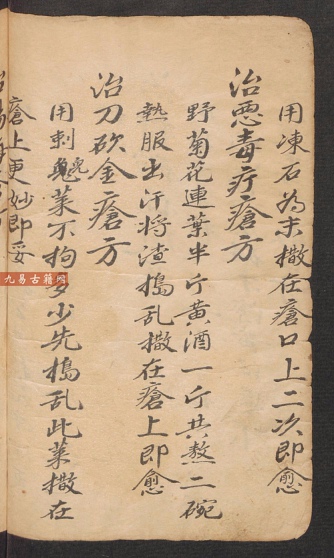 用凍石為末撒在瘡口上二次即愈
治惡毒疔瘡方
野菊花連葉半斤黃酒一斤共熬二碗
熱服出汗將渣搗乱撒在瘡上即愈
治刀砍金瘡方
用刺菜不拘多少先搗乱此菜撒在
瘡上更妙即妥
九易古籍网